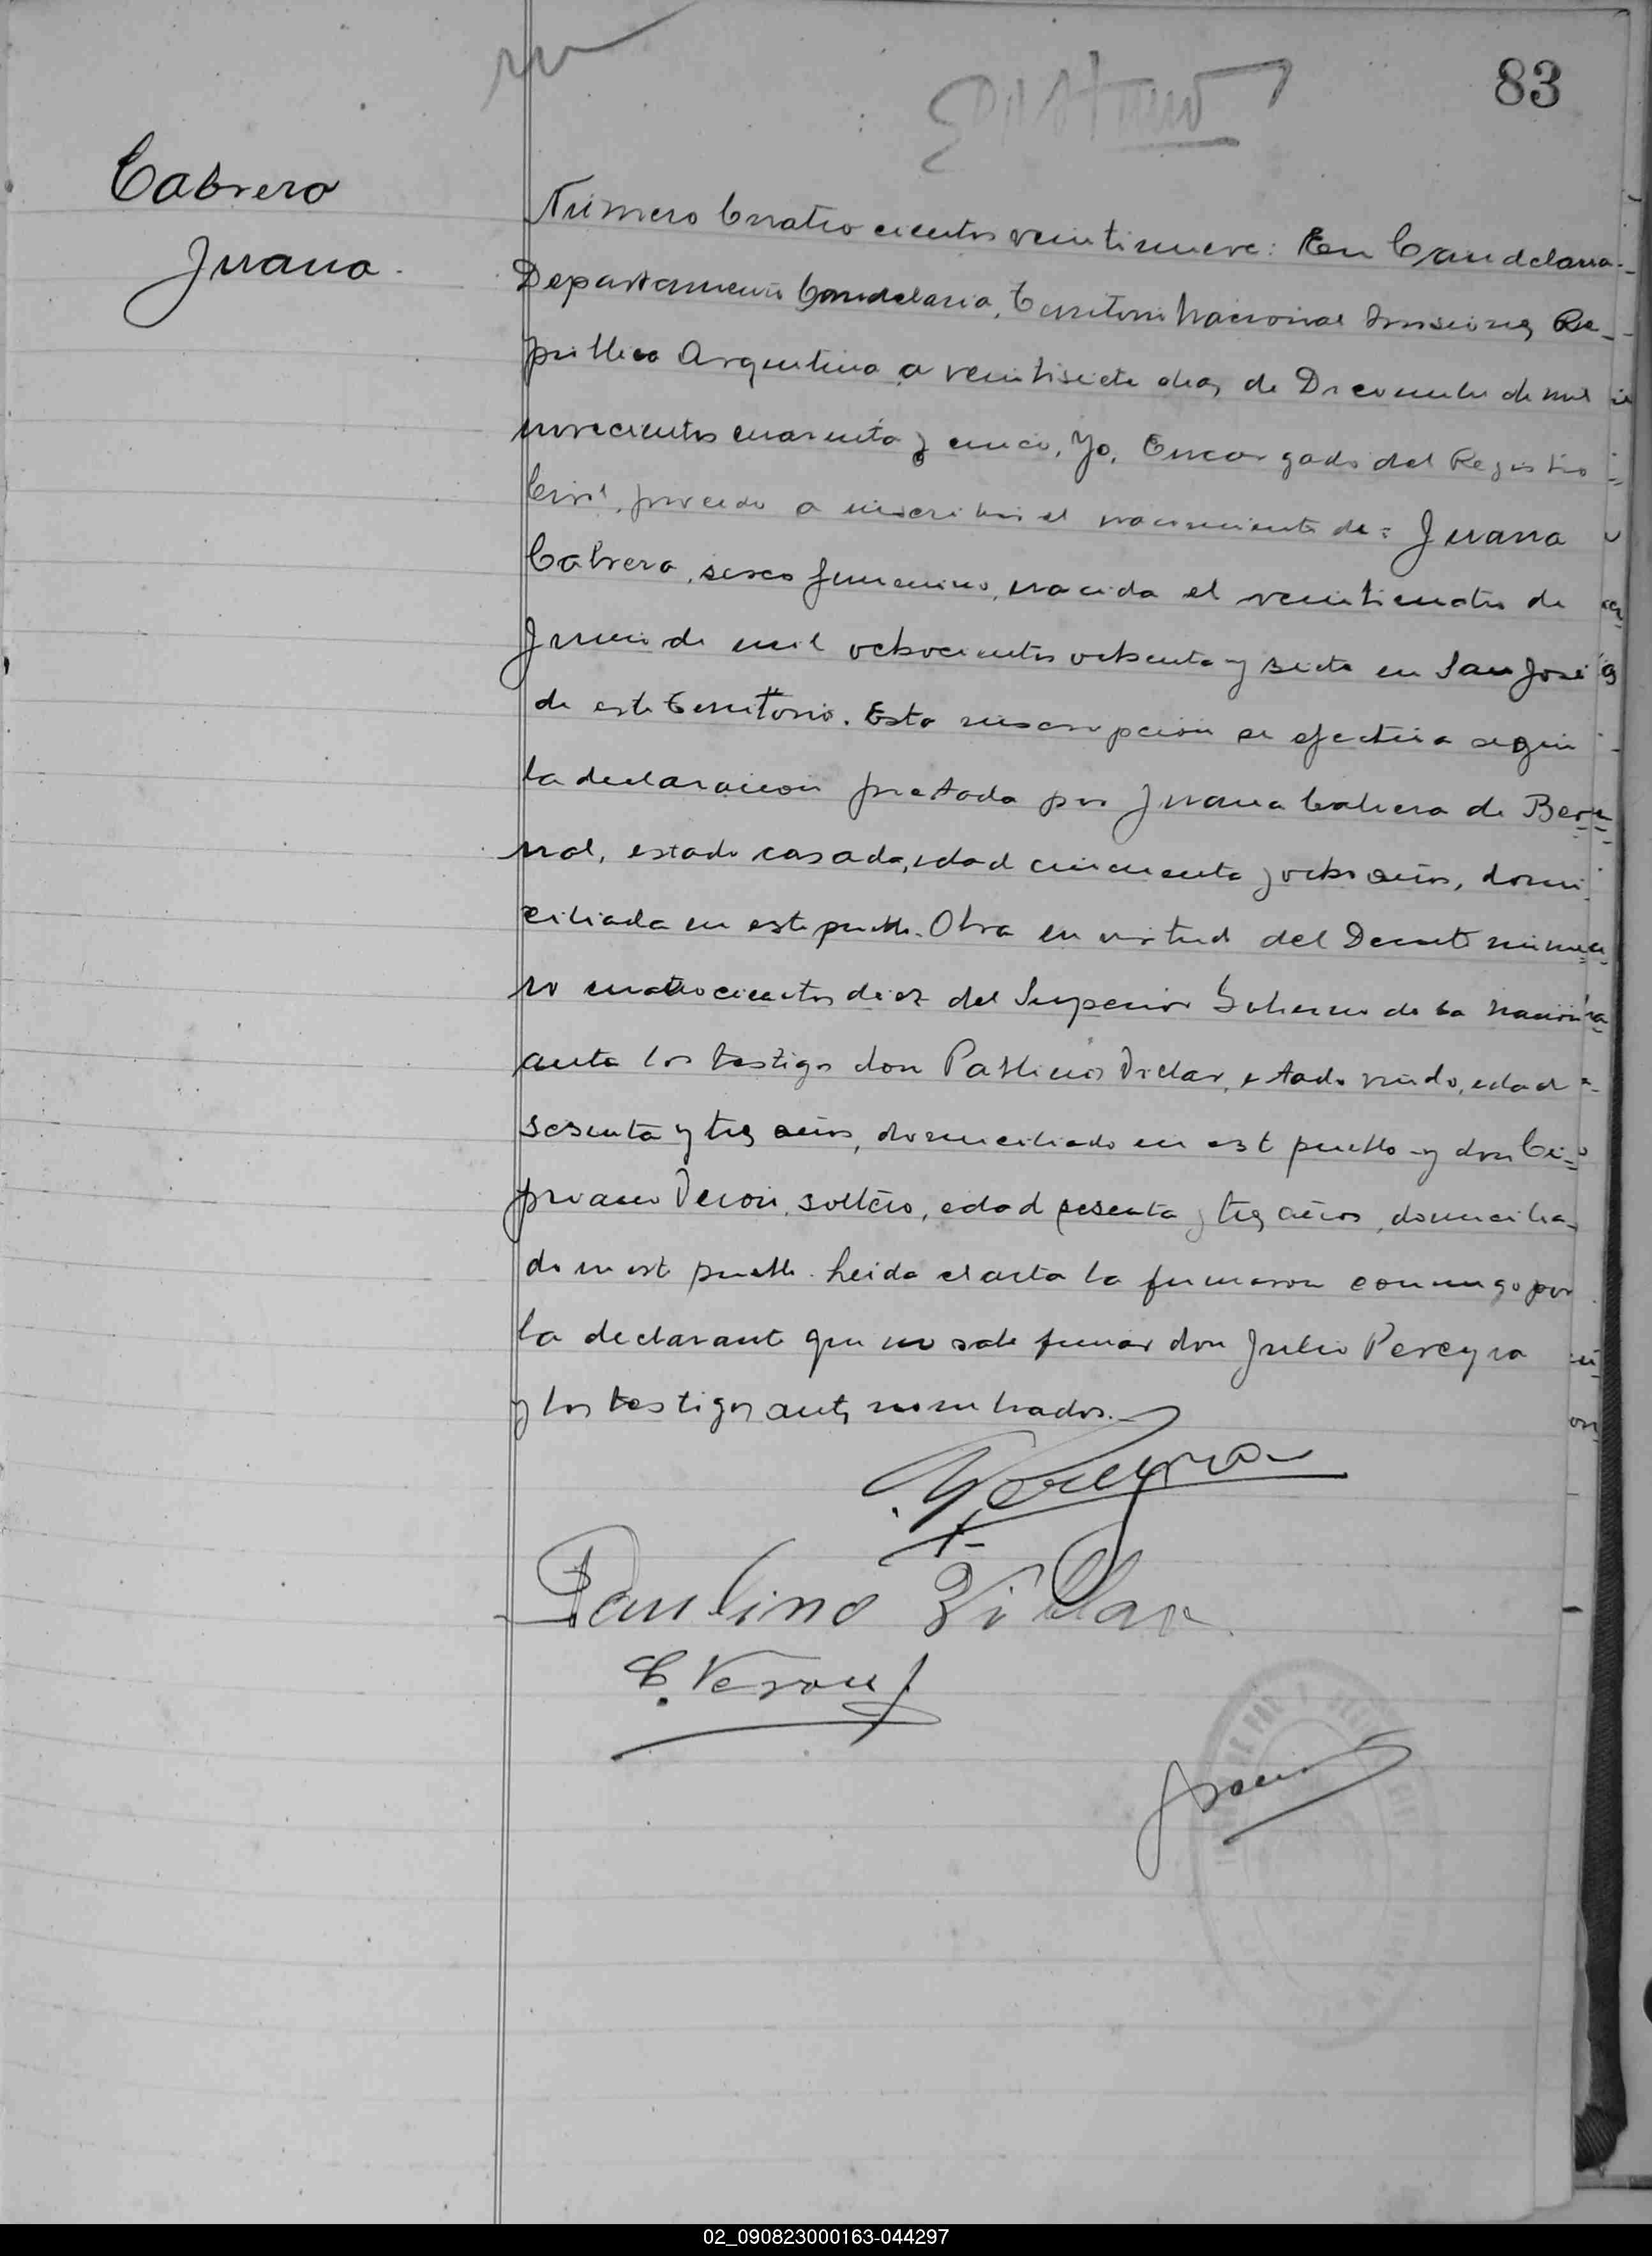 83
Cabrera
Juana.
Número Cuatrocientos veintinueve: En Candelaria
Departamento Candelaria, Territorio Nacional Misiones, Re-
pública Argentina a veintisiete dias de Diciembre de mil
novecientos cuarenta y cinco, Yo, Encargado del Registro
Civil, procedo a inscribir el nacimiento de: Juana
Cabrera, sexo femenino, nacida el veinticuatro de
Junio de mil ochocientos ochenta y siete en San José
de este Territorio. Esta inscripción se efectúa según
la declaración prestada por Juana Cabrera de Ber-
nal, estado casada, edad cincuenta y ocho años, domi
ciliada en este pueblo. Obra en virtud del Decreto núme-
ro cuatrocientos diez del Superior Gobierno de la Nación
ante los testigos don Patlino Villar, estado viudo, edad
sesenta y tres años, domiciliado en este pueblo y don Ci-
priano Veron, soltero, edad sesenta y tres años, domicilia-
do en este pueblo. Leida el acta la firmaron conmigo por
la declarante que no sabe firmar don Julio Pereyra
y los testigos antes nombrados.
Pereyra
Paulino Villar
C. Veron
02_090823000163-044297